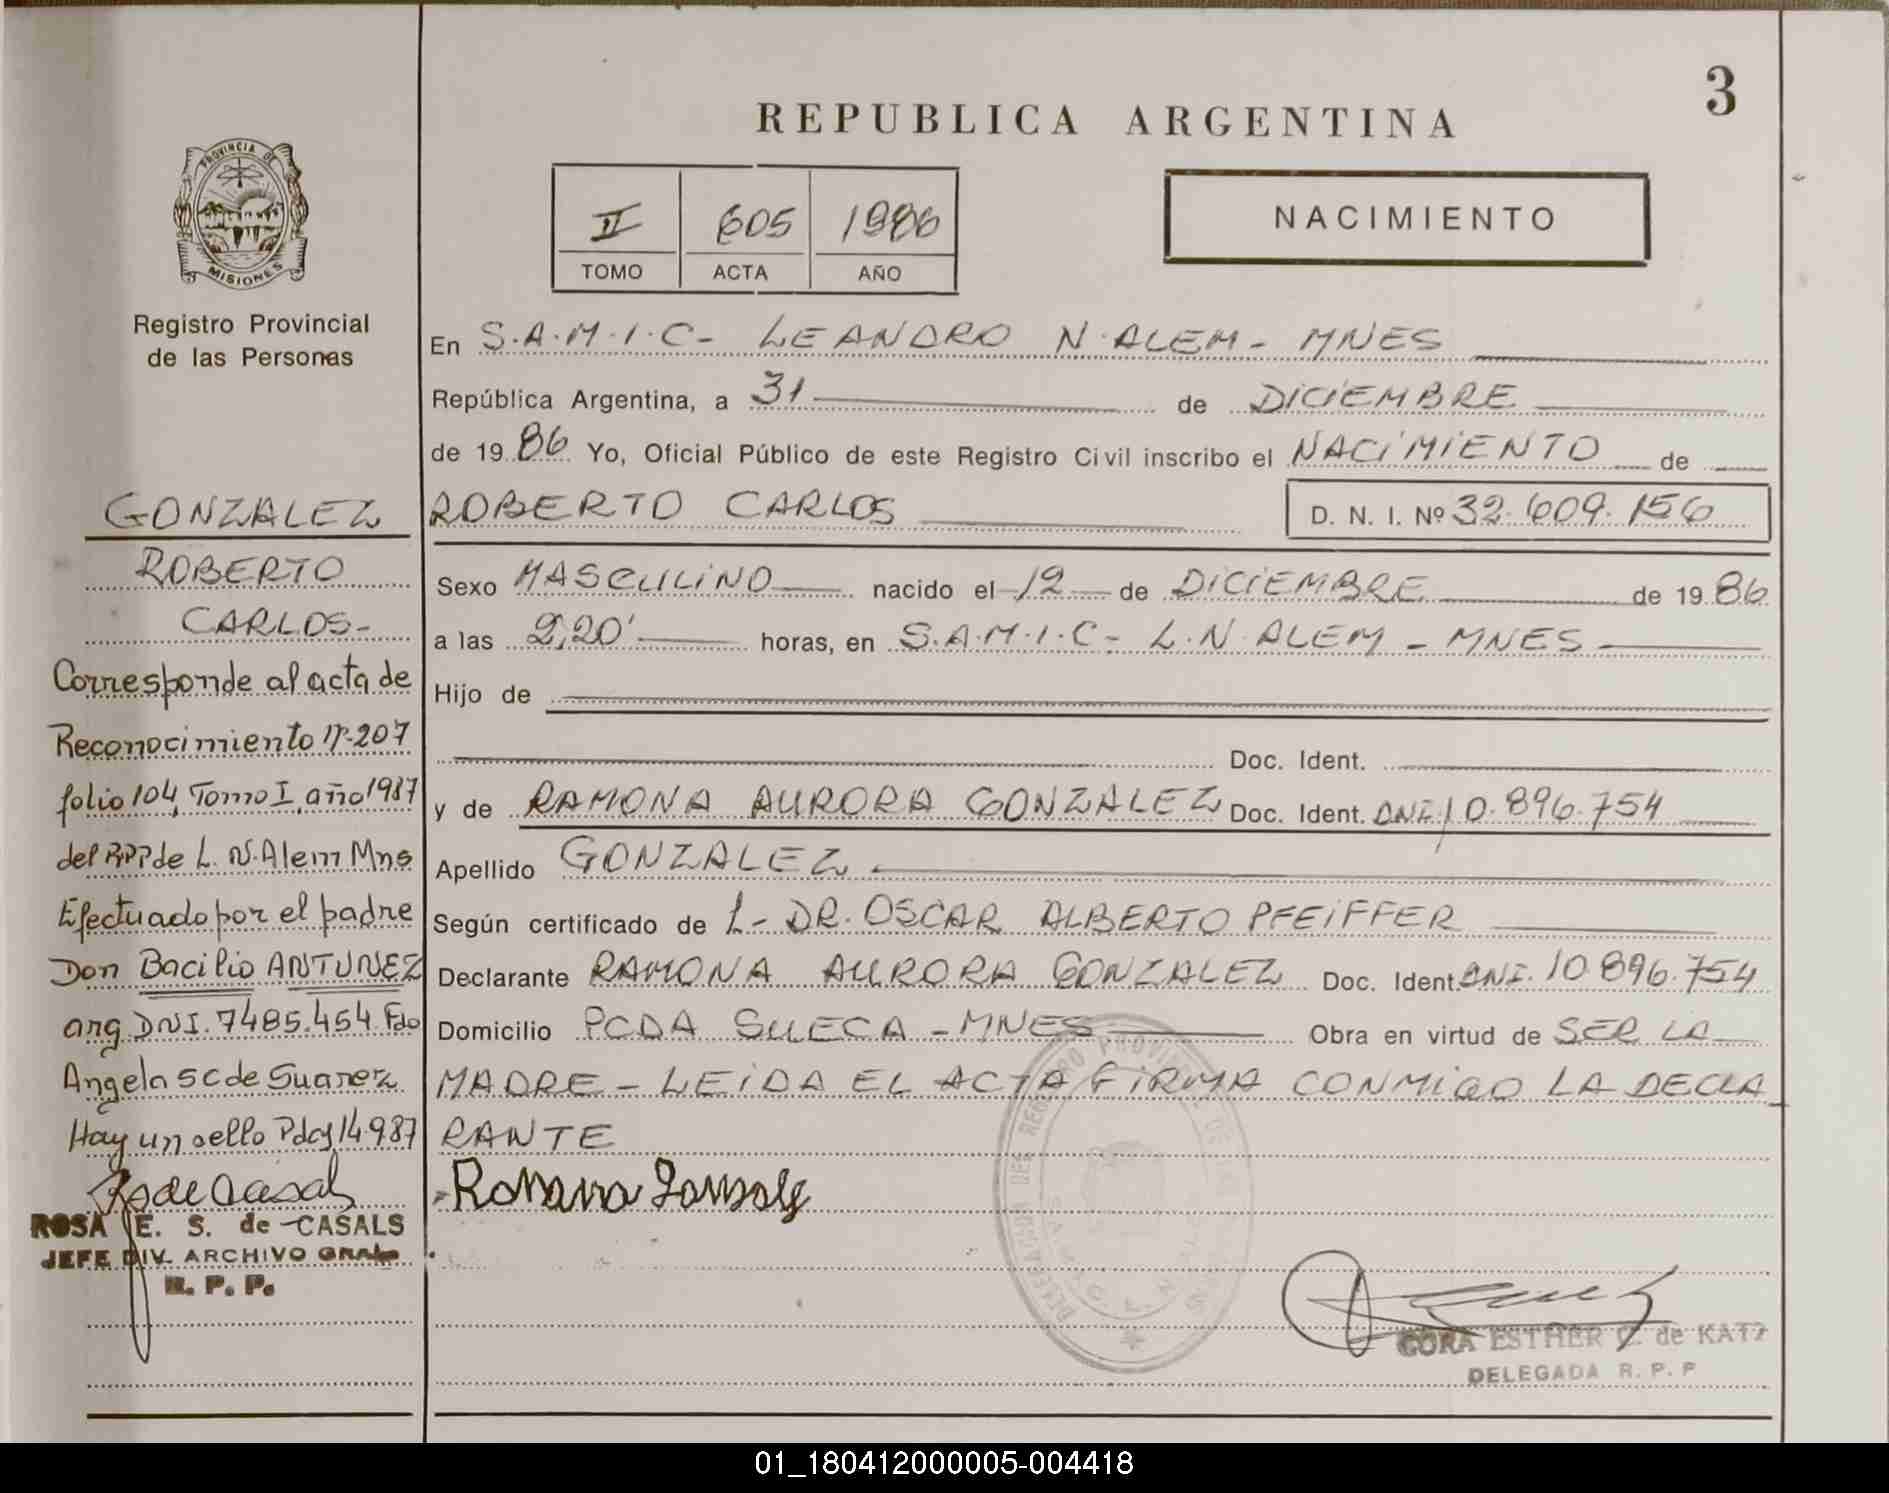 3
REPUBLICA ARGENTINA
PROVINCIA DE
MISIONES
Registro Provincial
de las Personas
II 605 1986
TOMO ACTA AÑO
NACIMIENTO
En S.A.M.I.C- LEANDRO N. ALEM- MNES
República Argentina, a 31 de DICIEMBRE
de 1986 Yo, Oficial Público de este Registro Civil inscribo el NACIMIENTO de
ROBERTO CARLOS D. N. I. Nº 32.609.156
Sexo MASCULINO nacido el 12 de DICIEMBRE de 1986
a las 2,20' horas, en S.A.M.I.C- L.N. ALEM - MNES
Hijo de
Doc. Ident.
y de RAMONA AURORA GONZALEZ Doc. Ident. DNI 10.896.754
Apellido GONZALEZ
Según certificado de L- DR. OSCAR ALBERTO PFEIFFER
Declarante RAMONA AURORA GONZALEZ Doc. Ident. DNI. 10.896.754
Domicilio PCDA SUECA - MNES Obra en virtud de SER LA
MADRE - LEIDA EL ACTA FIRMA CONMIGO LA DECLA
RANTE
GONZALEZ
ROBERTO
CARLOS-
Corresponde al acta de
Reconocimiento nº 207
folio 104, Tomo I, año 1987
del RPP de L. N. Alem Mns
Efectuado por el padre
Don Bacilio ANTUNEZ
arg. DNI. 7485.454 Fdo
Angela S C de Suarez
Hay un sello Pdas 14.9.87
R S de Casals
ROSA E. S. de CASALS
JEFE DIV. ARCHIVO GRAL
R. P. P.
Ramona Gonzalez
DELEGACION DEL REGISTRO PROVINCIAL DE LAS
CORA ESTHER C. de KATZ
DELEGADA R. P. P
01_180412000005-004418